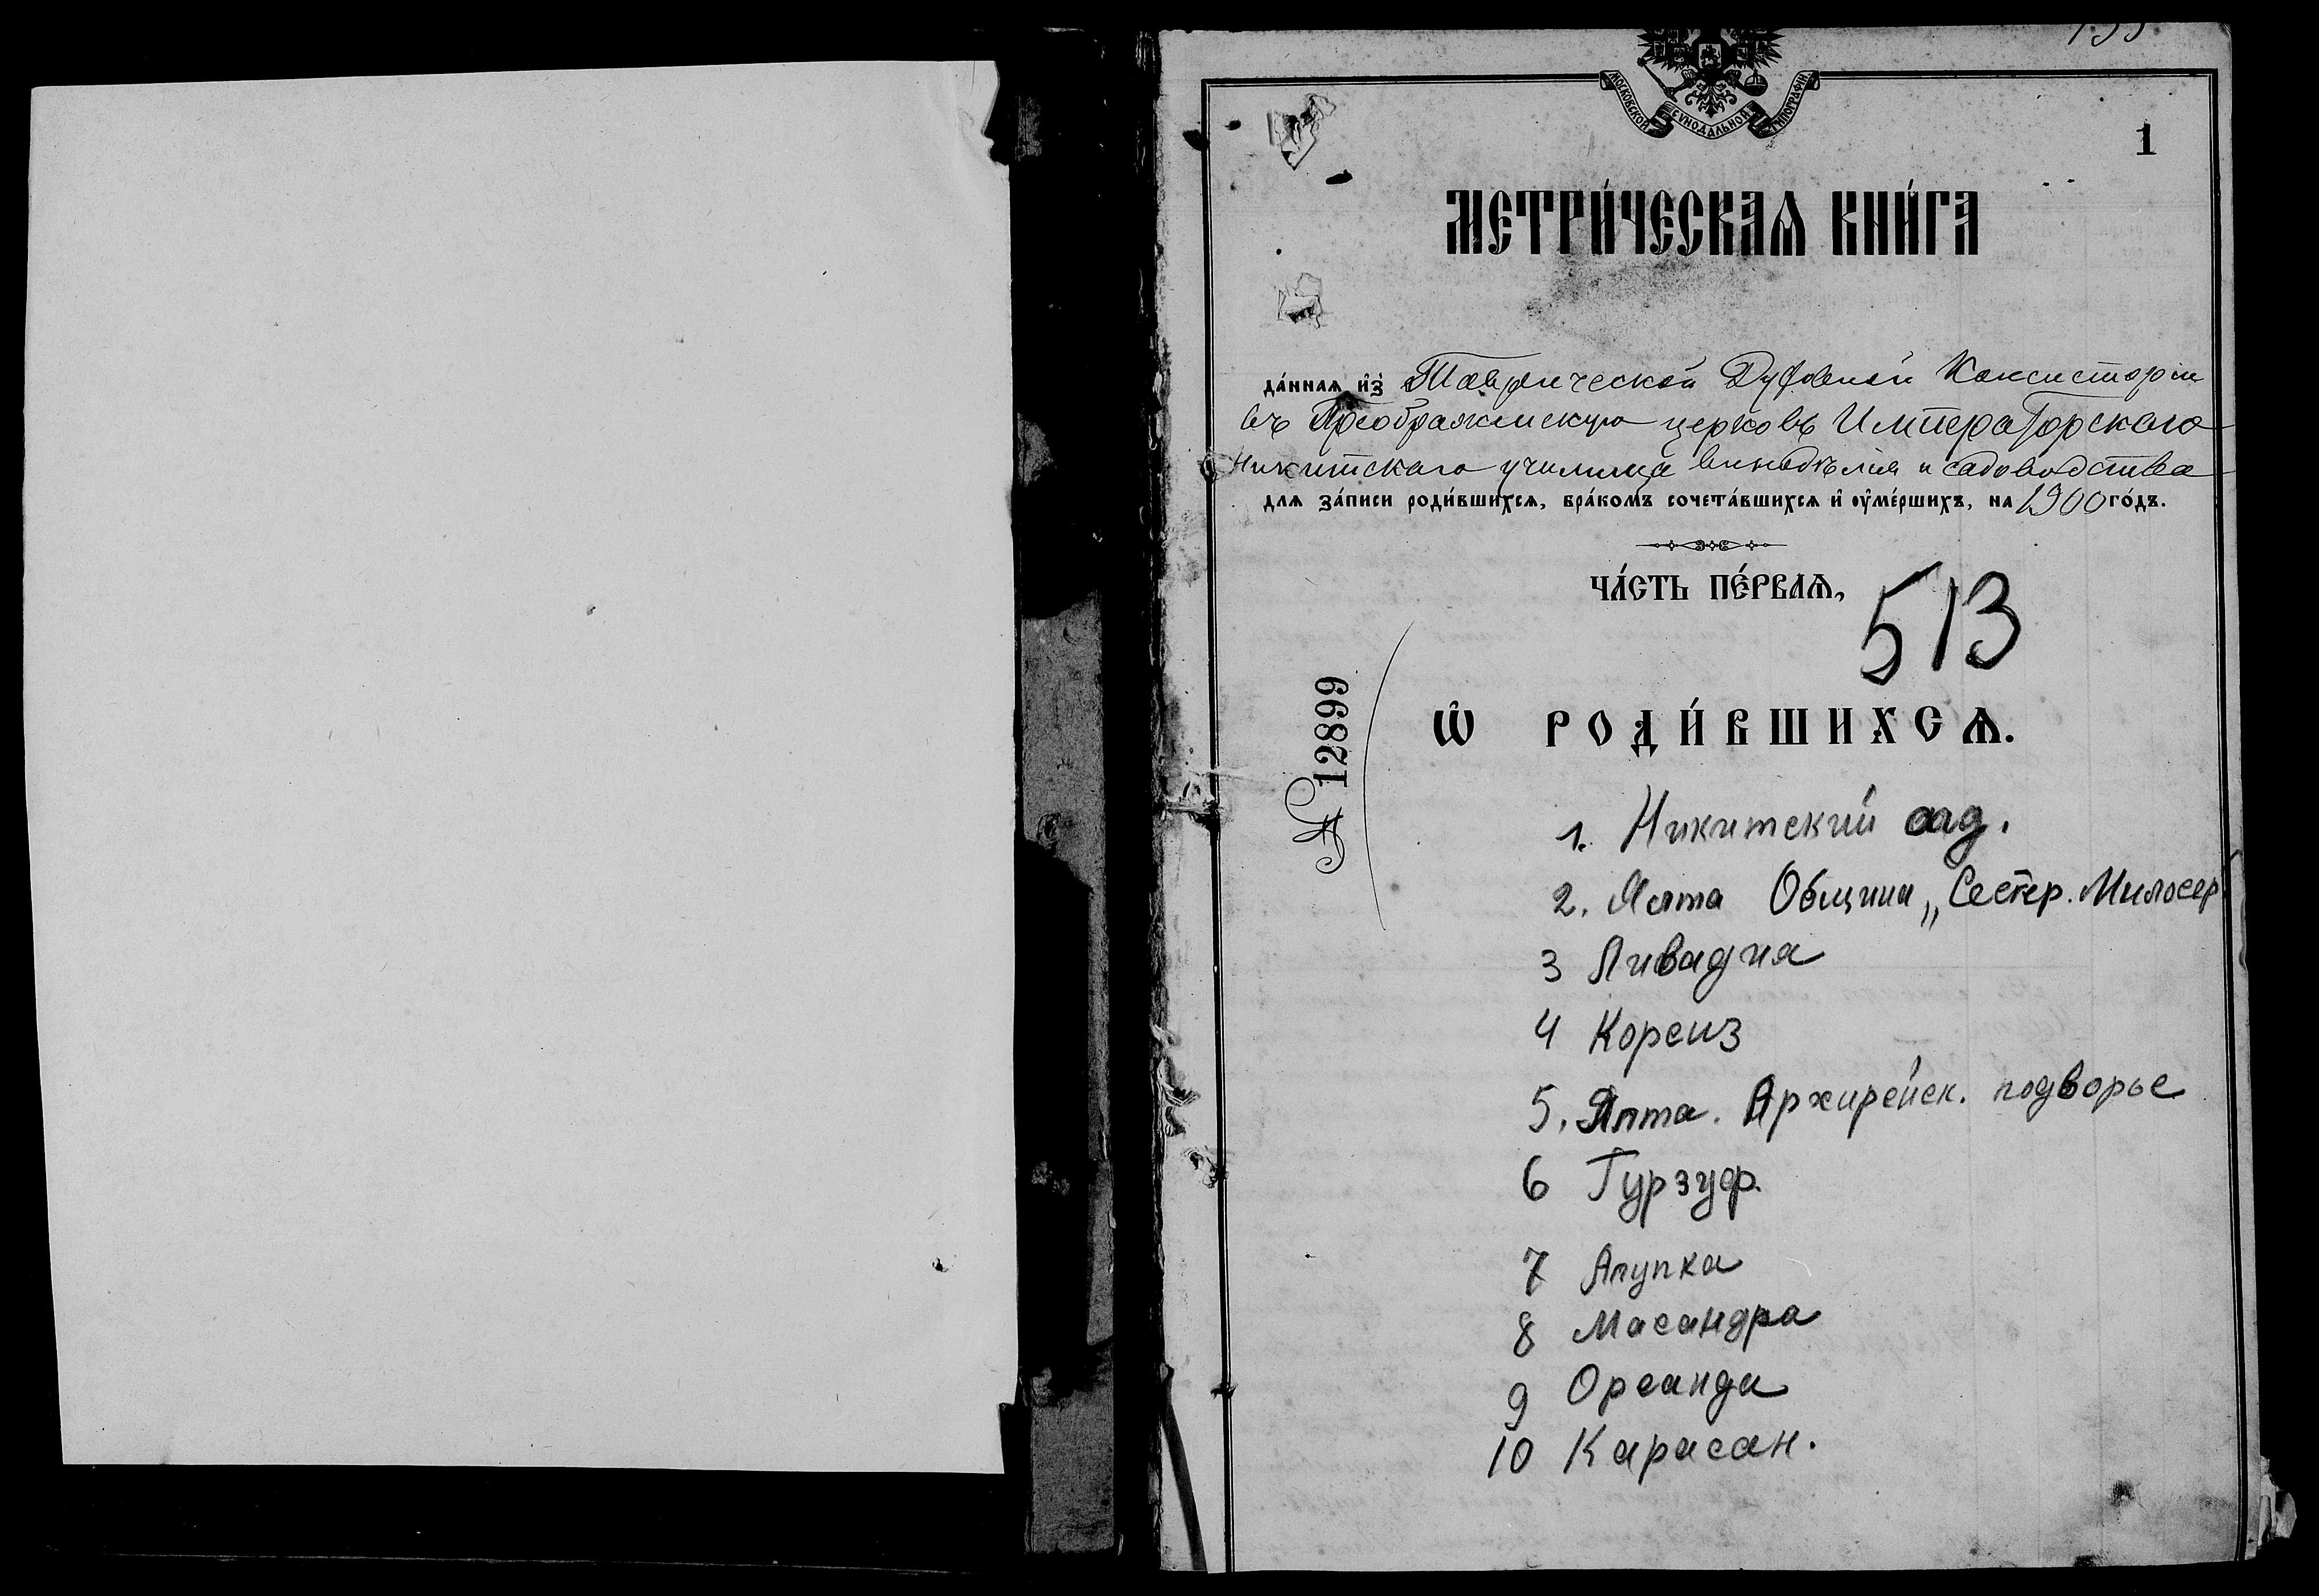 МОСКОВСКОЙ СѴНОДАЛЬНОЙ ТИПОГРАФІИ
1
МЕТРИ́ЧЕСКАѦ КНИ́ГА
да́ннаѧ и҆з̾ Таврической Духовной Консисторіи
въ Преображенскую церковь Императорскаго
Никитскаго училища винодѣлія и садоводства
для за́писи роди́вшихсѧ, бра́комъ сочета́вшихсѧ и҆ ᲂу҆ме́ршихъ, на 1900 го́дъ.
ЧА́СТЬ ПЕ́РВАѦ,
513
№ 12899
Ѡ҆ РОДИ́ВШИХСѦ.
1. Никитский сад.
2. Ялта Община „Сестер. Милосер
3 Ливадия
4 Кореиз
5. Ялта. Архирейск. подворье
6 Гурзуф.
7 Алупка
8 Масандра
9 Ореанда
10 Карасан.